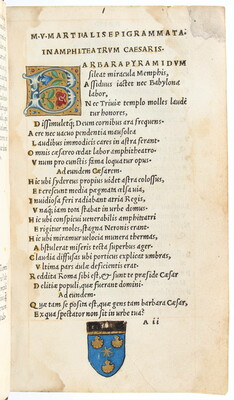 M·V·MARTIALIS EPIGRAMMATA·
IN AMPHITEATRVM CAESARIS·
BARBARA PYRAMIDVM
sileat miracula Memphis,
Assiduus iactet nec Babylona
labor,
Nec Triuiæ templo molles laudé
tur honores,
Dissimuletq; Deum cornibus ara frequens
Aere nec uacuo pendentia mausolea
Laudibus immodicis cares in astra ferant·
Omnis cæsareo cædat labor amphiteatro·
Vnum pro cunctis fama loquatur opus·
Ad eundem Cæsarem·
Hic ubi sydereus propius uidet astra colossus,
Et crescunt media pegmata celsa uia,
Inuidiosa feri radiabant atria Regis,
Vnaq; iam tota stabat in urbe domus·
Hic ubi conspicui uenerabilis amphiteatri
Erigitur moles, stagna Neronis erant·
Hic ubi miramur uelocia munera thermas,
Abstulerat miseris tecta superbus ager·
Claudia diffusas ubi porticus explicat umbras,
Vltima pars aulæ deficientis erat·
Reddita Roma sibi est, & sunt te præside Cæsar
Delitiæ populi, quæ fuerant domini·
Ad eundem·
Quæ tam seposita est, quæ gens tam barbara Cæsar,
Ex qua spectator non sit in urbe tua?
A ii